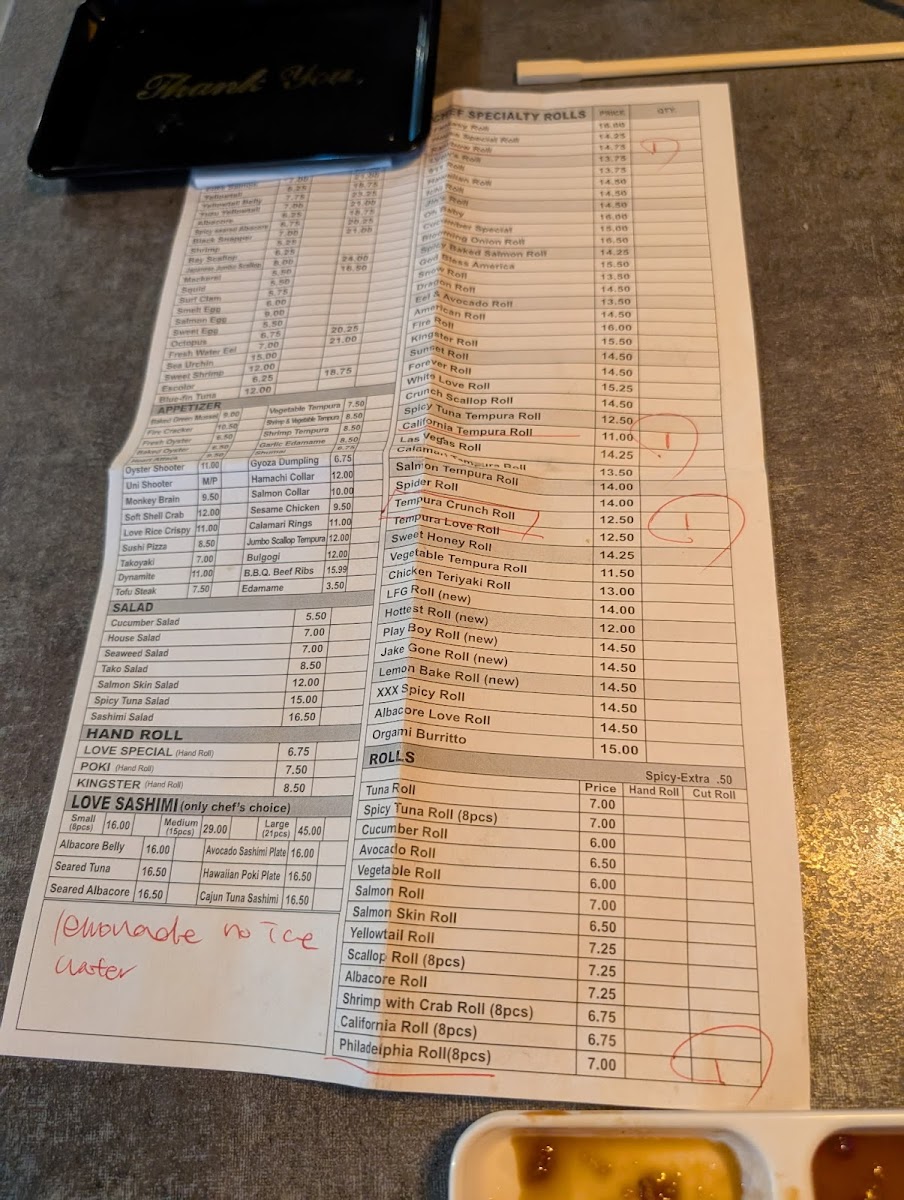 Thank You
CHEF SPECIALTY ROLLS PRICE QTY.
Roll 16.00
Special Roll 14.25
Roll 14.75 1
Roll 13.75
Roll 13.75
Hawaiian Roll 14.50
Roll 14.50
Roll 14.50
Oh Baby 16.00
Cucumber Special 15.00
Blooming Onion Roll 16.50
Spicy Baked Salmon Roll 14.25
God Bless America 15.50
Snow Roll 13.50
Dragon Roll 14.50
Eel & Avocado Roll 13.50
American Roll 14.50
Fire Roll 16.00
Kingster Roll 15.50
Sunset Roll 14.50
Forever Roll 14.50
White Love Roll 15.25
Crunch Scallop Roll 14.50
Spicy Tuna Tempura Roll 12.50
California Tempura Roll 11.00 1
Las Vegas Roll 14.25
Calamari Tempura Roll 13.50
Salmon Tempura Roll 14.00
Spider Roll 14.00
Tempura Crunch Roll 12.50 1
Tempura Love Roll 12.50
Sweet Honey Roll 14.25
Vegetable Tempura Roll 11.50
Chicken Teriyaki Roll 13.00
LFG Roll (new) 14.00
Hottest Roll (new) 12.00
Play Boy Roll (new) 14.50
Jake Gone Roll (new) 14.50
Lemon Bake Roll (new) 14.50
XXX Spicy Roll 14.50
Albacore Love Roll 14.50
Orgami Burritto 15.00
ROLLS Spicy-Extra .50
Price Hand Roll Cut Roll
Tuna Roll 7.00
Spicy Tuna Roll (8pcs) 7.00
Cucumber Roll 6.00
Avocado Roll 6.50
Vegetable Roll 6.00
Salmon Roll 7.00
Salmon Skin Roll 6.50
Yellowtail Roll 7.25
Scallop Roll (8pcs) 7.25
Albacore Roll 7.25
Shrimp with Crab Roll (8pcs) 6.75
California Roll (8pcs) 6.75
Philadelphia Roll(8pcs) 7.00 1
Yellowtail
Yellowtail Belly
Yuzu Yellowtail
Albacore
Spicy seared Albacore
Black Snapper
Shrimp
Bay Scallop
Japanese Jumbo Scallop
Mackerel
Squid
Surf Clam
Smelt Egg
Salmon Egg
Sweet Egg
Octopus
Fresh Water Eel
Sea Urchin
Sweet Shrimp
Escolar
Blue-fin Tuna 12.00
APPETIZER
Baked Green Mussel 9.00 Vegetable Tempura 7.50
Fire Cracker 10.50 Shrimp & Vegetable Tempura 8.50
Fresh Oyster Shrimp Tempura 8.50
Baked Oyster Garlic Edamame 8.50
Shumai
Oyster Shooter 11.00 Gyoza Dumpling 6.75
Uni Shooter M/P Hamachi Collar 12.00
Monkey Brain 9.50 Salmon Collar 10.00
Soft Shell Crab 12.00 Sesame Chicken 9.50
Love Rice Crispy 11.00 Calamari Rings 11.00
Sushi Pizza 8.50 Jumbo Scallop Tempura 12.00
Takoyaki 7.00 Bulgogi 12.00
Dynamite 11.00 B.B.Q. Beef Ribs 15.99
Tofu Steak 7.50 Edamame 3.50
SALAD
Cucumber Salad 5.50
House Salad 7.00
Seaweed Salad 7.00
Tako Salad 8.50
Salmon Skin Salad 12.00
Spicy Tuna Salad 15.00
Sashimi Salad 16.50
HAND ROLL
LOVE SPECIAL (Hand Roll) 6.75
POKI (Hand Roll) 7.50
KINGSTER (Hand Roll) 8.50
LOVE SASHIMI (only chef's choice)
Small (8pcs) 16.00 Medium (15pcs) 29.00 Large (21pcs) 45.00
Albacore Belly 16.00 Avocado Sashimi Plate 16.00
Seared Tuna 16.50 Hawaiian Poki Plate 16.50
Seared Albacore 16.50 Cajun Tuna Sashimi 16.50
lemonade no Ice
water